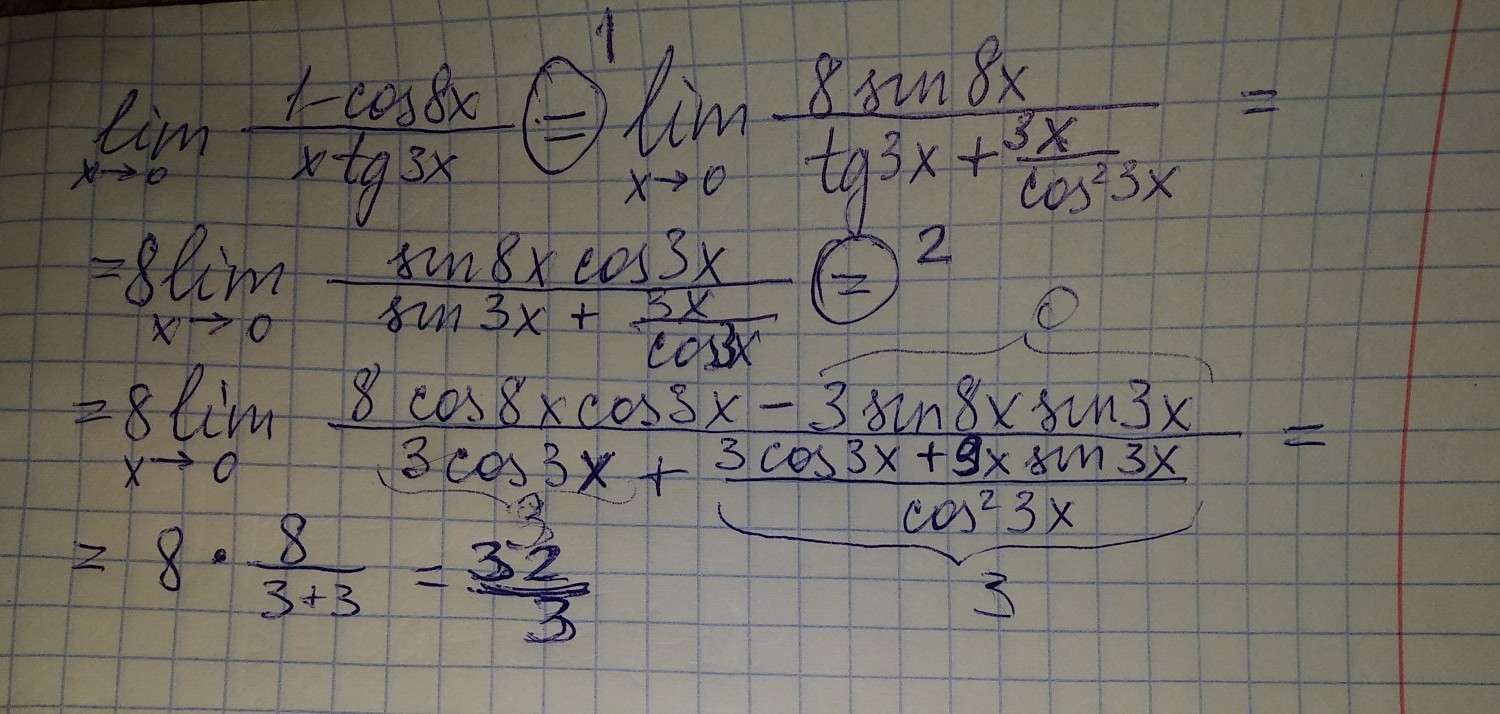 lim x→0 (1-cos8x)/(x tg3x) = 1 lim x→0 (8 sin8x)/(tg3x + 3x/cos²3x) =
=8 lim x→0 (sin8x cos3x)/(sin3x + 3x/cos3x) = 2
=8 lim x→0 (8 cos8x cos3x - 3 sin8x sin3x)/(3 cos3x + (3 cos3x + 9x sin3x)/cos²3x) =
0
3
3
= 8 · 8/(3+3) = 32/3